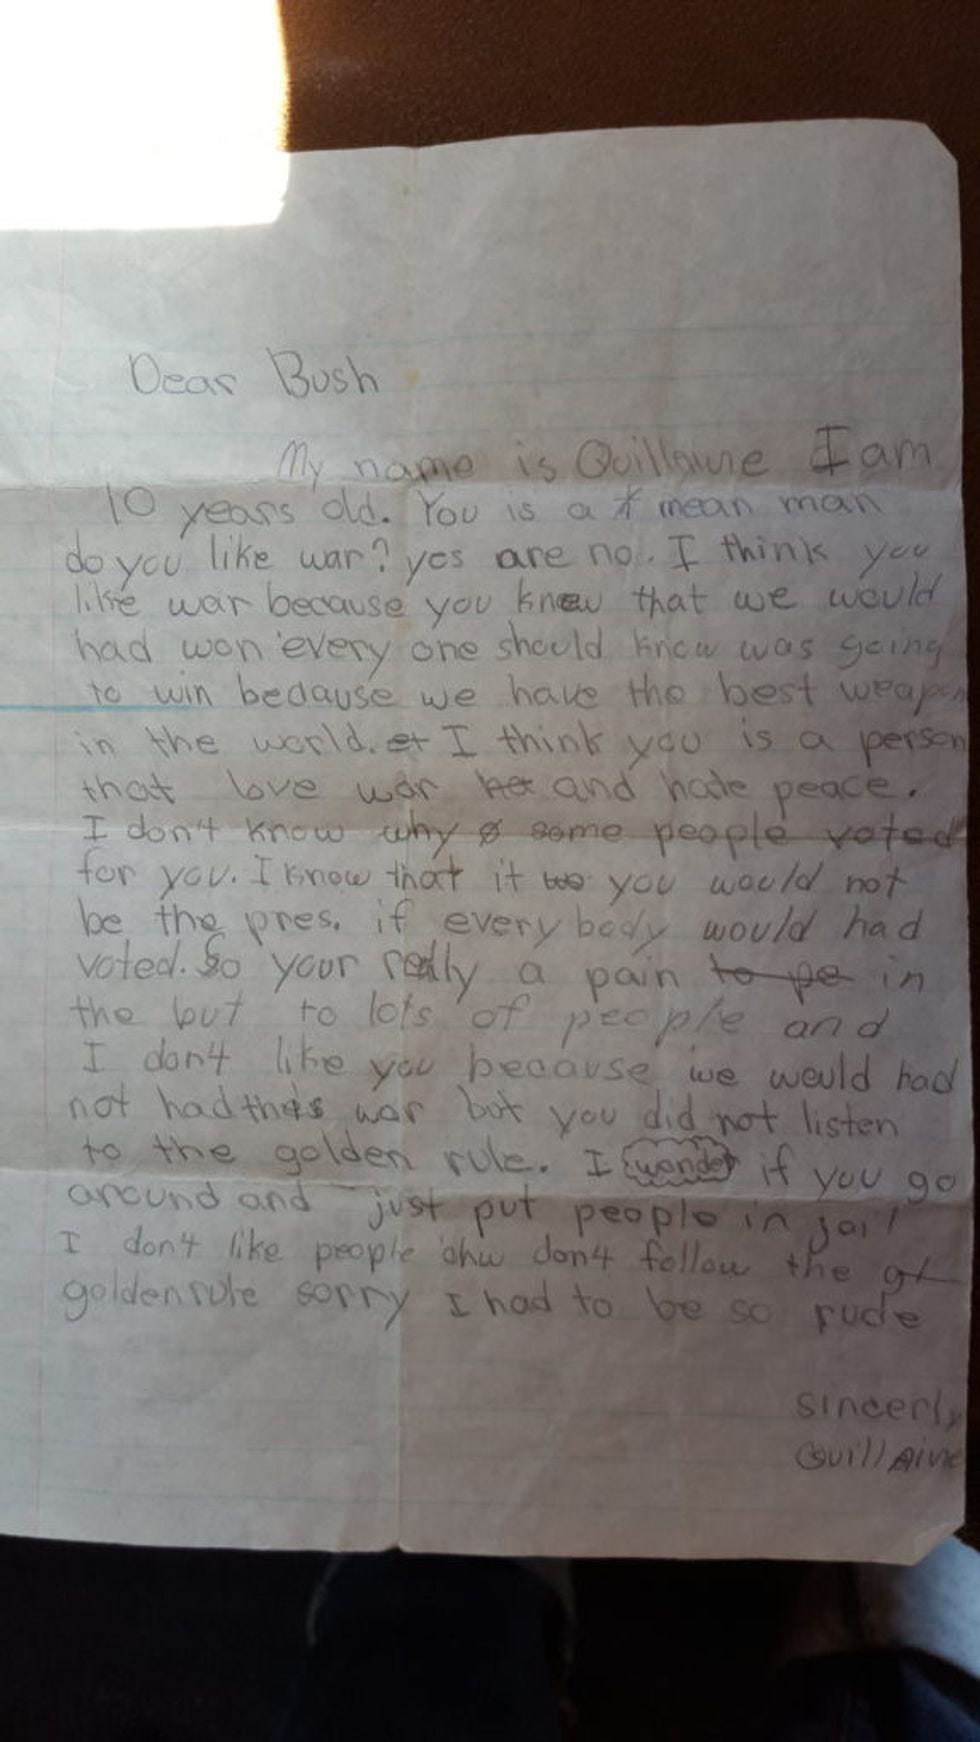 Dear Bush
My name is Quillaine I am
10 years old. You is a mean man
do you like war? yes are no. I think you
like war because you knew that we would
had won every one should know was going
to win bedause we have the best weapon
in the world. et I think you is a person
that love war and hate peace.
I don't know why some people voted
for you. I know that it you would not
be the pres. if every body would had
voted. So your really a pain to pe in
the but to lots of people and
I don't like you because we would had
not had this war but you did not listen
to the golden rule. I wonder if you go
around and just put people in jail
I don't like people ohw don't follow the gl
golden rule sorry I had to be so rude
sincerly
Quillaine